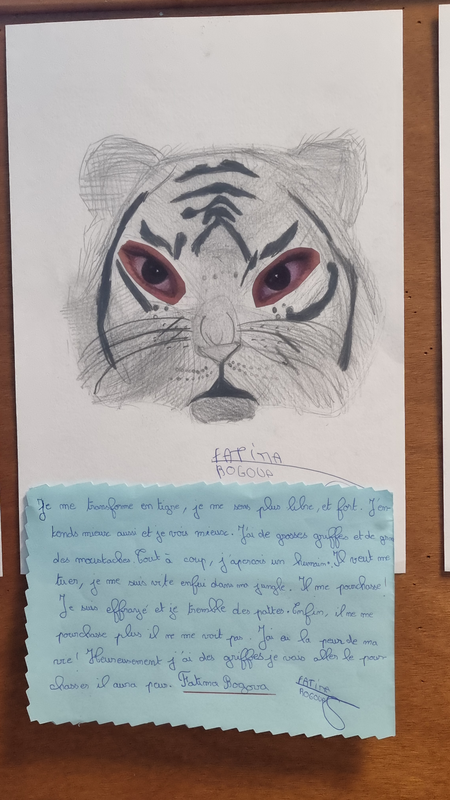 FATIMA
BOGOVA
Je me transforme en tigre, je me sens plus libre, et fort. J'en
tends mieux aussi et je vois mieux. J'ai de grosses griffes et de
des moustaches Tout à coup, j'aperçois un humain. Il veut me
tuer, je me suis vite enfui dans ma jungle. Il me pourchasse!
Je suis effrayé et je tremble des pattes. Enfin, il ne me
pourchasse plus il ne me voit pas. J'ai eu la peur de ma
vie! Heureusement j'ai des griffes, je vais aller le pour
chasser il aura peur. Fatima Bogova
FATIMA
BOGOVA